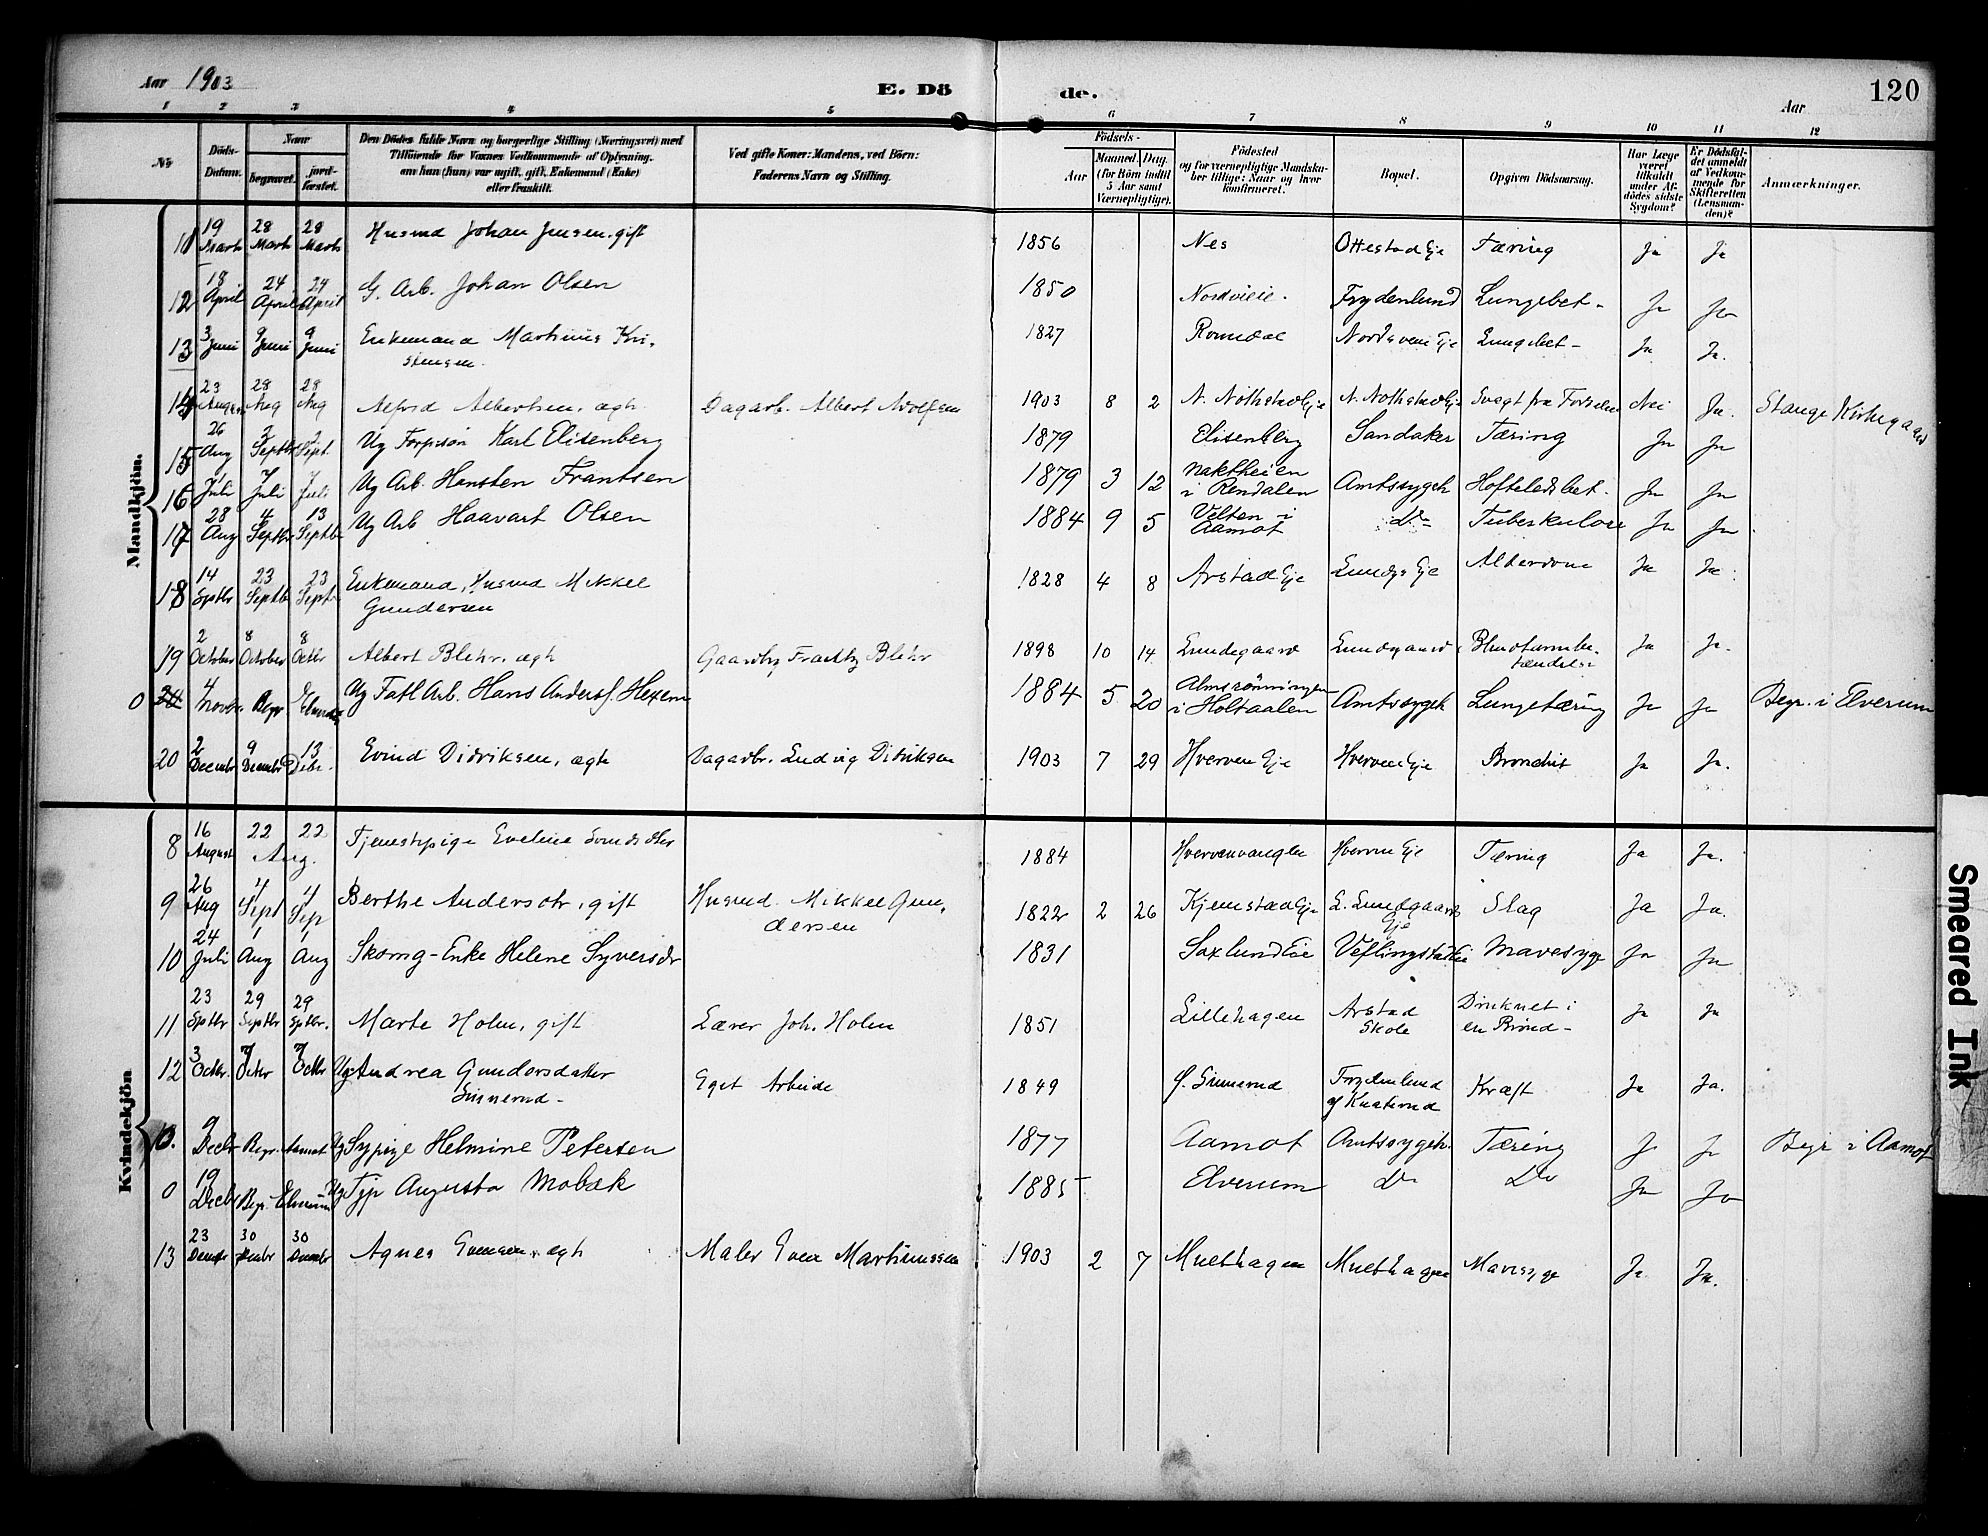 Aar 1903
E. Dö de.
Aar
120
1 2 3 4 5 6 7 8 9 10 11 12
No
Döds-Datum.
Naar
begravet.
jordfæstet.
Den Dödes fulde Navn og borgerlige Stilling (Næringsvei) med
Tilföiende for Voxnes Vedkommende af Oplysning,
om han (hun) var ugift, gift, Enkemand (Enke)
eller fraskilt.
Ved gifte Koner: Mandens, ved Börn:
Faderens Navn og Stilling.
Födsels-
Aar
Maaned. Dag.
(for Börn indtil
5 Aar samt
Værnepligtige).
Födested
og for værnepligtige Mandskaber tillige: Naar og hvor
konfirmeret.
Bopæl.
Opgiven Dödsaarsag.
Har Læge været tilkaldt under Afdödes sidste Sygdom?
Er Dödsfaldet anmeldt af Vedkommende for Skifteretten (Lensmanden)?
Anmærkninger.
Mandkjön.
11 19 Marts 28 Marts 28 Marts Husmd Johan Jensen, gift 1856 Nes Ottestad Eje Tæring Ja Ja
12 18 April 24 April 24 April G. Arb. Johan Olsen 1850 Nordvieie Frydenlund Lungebet- Ja Ja
13 3 Juni 9 Juni 9 Juni Enkemand Martinus Kri- 1827 Romedal Nordsveen Eje Lungebet- Ja Ja.
stensen.
14 23 August 28 Aug 28 Aug Alfred Albertsen, ægte Dagarb. Albert Adolfsen 1903 8 2 N. Nothstad Eje N. Nothstad Eje Svagt fra Fødselen Nei Ja. Stange Kirkegaard
15 26 Aug 2 Septbr 2 Sept. Ug Forpsön Karl Elisenberg 1879 Elisenberg Sandaker Tæring Ja Ja
16 1 Juli 7 Juli 7 Juli Ug Arb. Hansten Frantsen 1879 3 12 Naktheien i Rendalen Amtssygeh Hofteledsbet. Ja Ja
17 28 Aug 4 Septbr 13 Septbr Ug Arb Haavart Olsen 1884 9 5 Velten i Aamot Do Tuberkulose Ja Ja
18 14 Sptbr 23 Septbr 23 Septbr Enkemand, Husmd Mikkel 1828 4 8 Arstad Eje Lunds Eje Alderdom Ja Ja
Gundersen
19 2 October 8 October 8 Octbr Albert Blehr, ægte Gaardbr Fredtz Blehr 1898 10 14 Lundegaard Lundgaard Blindtarmbetændelse Ja Ja.
0 20 4 Novbr Begr Elverum Ug Fatl Arb. Hans Anders. Hexem 1884 5 20 Almsrönningen i Holtaalen Amtssygeh Lungetæring Ja Ja Begr. i Elverum
20 2 Decembr 9 Decembr 13 Debr. Evind Didriksen, ægte Dagarbr. Ludvig Didriksen 1903 7 29 Hverven Eje Hverven Eje Bronchit Ja Ja.
Kvindekjön
8 16 August 22 22 Aug. Tjenestepige Eveline Svendsdtter 1884 Hvervenvangen Hverven Eje Tæring Ja Ja.
9 26 Aug 4 Sept 4 Sep Berthe Andersdtr, gift Husmd. Mikkel Gun- 1822 2 26 Kjemstad Eje L. Lundgaards Eje Slag Ja Ja.
dersen
10 24 Juli 1 Aug 1 Aug Skomg-Enke Helene Syversdr 1831 Saxlund Eie Veflingstad Eie Mavesyge Ja Ja
11 23 Sptbr 29 Septbr 29 Sptbr. Marte Holm, gift Lærer Joh. Holm 1851 Lillehagen Arstad Skole Druknet i en Brönd- Ja Ja
12 3 Octbr. 7 Octbr 7 Octbr Ug Andrea Gundersdatter Eget Arbeide 1849 Ö. Sinnerud Frydenlund af Knaterud Kræft Ja Ja.
Sinnerud-
0. 9 Decbr Begr. Aamot Ug Sypige Helmine Petersen 1877 Aamot Amtssygeh. Tæring Ja Ja Begr i Aamot
0 19 Decbr Begr. Elverum Ug Tjp Augusta Mobæk 1885 Elverum Do Do Ja Ja
13 23 Decbr 30 Decbr 30 Decbr Agnes Evensen, ægte Maler Even Martinussen 1903 2 7 Muelhagen Muelhagen Mavesyge Ja Ja.
Smeared Ink